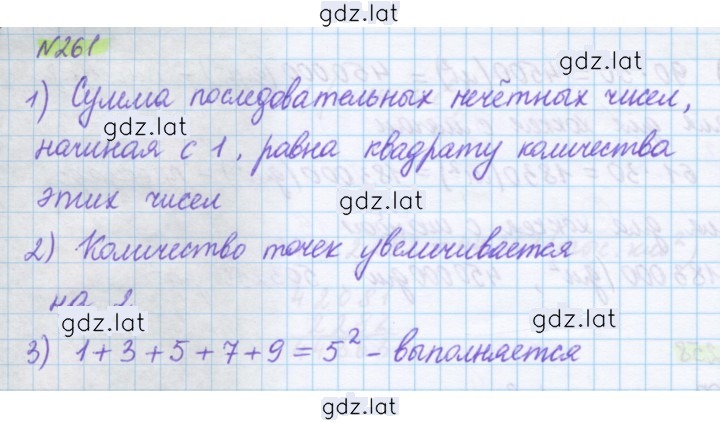 gdz.lat
№261
gdz.lat
1) Сумма последовательных нечётных чисел,
gdz.lat
начиная с 1, равна квадрату количества
этих чисел
gdz.lat
2) Количество точек увеличивается
на
gdz.lat
gdz.lat
3) 1+3+5+7+9=5² - выполняется
gdz.lat